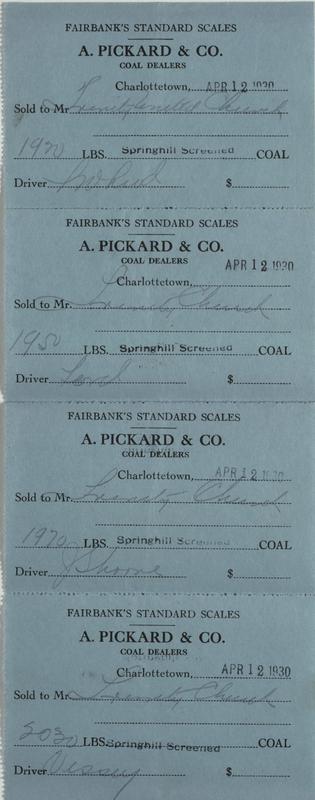 FAIRBANK'S STANDARD SCALES
A. PICKARD & CO.
COAL DEALERS
Charlottetown, APR 12 1930
Sold to Mr. Trinity United Church
1920 LBS. Springhill Screened COAL
Driver $
FAIRBANK'S STANDARD SCALES
A. PICKARD & CO.
COAL DEALERS
APR 12 1930
Charlottetown,
Sold to Mr. Trinity Church
1950 LBS. Springhill Screened COAL
Driver $
FAIRBANK'S STANDARD SCALES
A. PICKARD & CO.
COAL DEALERS
Charlottetown, APR 12 1930
Sold to Mr. Trinity Church
1970 LBS. Springhill Screened COAL
Driver $
FAIRBANK'S STANDARD SCALES
A. PICKARD & CO.
COAL DEALERS
Charlottetown, APR 12 1930
Sold to Mr. Trinity Church
2030 LBS. Springhill Screened COAL
Driver Vessey $